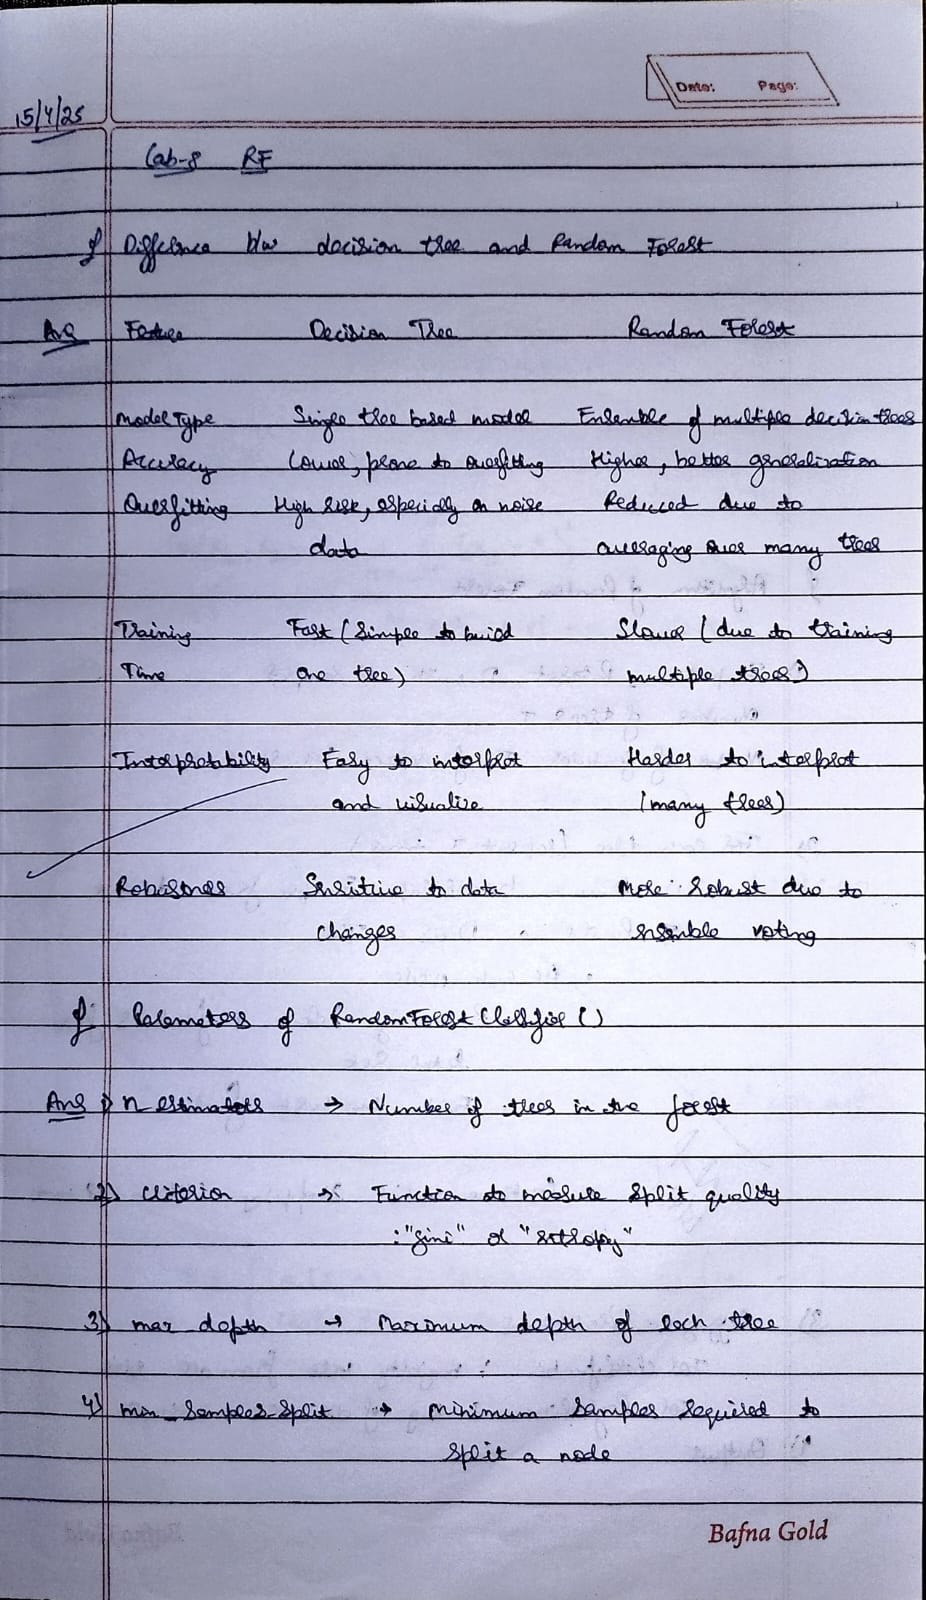 Date: Page:
15/4/25
Lab-8 RF
Q Difference b/w decision tree and Random Forest
Ans Feature Decision Tree Random Forest
Model Type Single tree based model Ensemble of multiple decision trees
Accuracy Lower, prone to overfitting Higher, better generalization
Overfitting High risk, especially on noise Reduced due to
data averaging over many trees
Training Fast (Simple to build Slower (due to training
Time one tree) multiple trees)
Interpretability Easy to interpret Harder to interpret
and visualize (many trees)
Robustness Sensitive to data More robust due to
changes ensemble voting
Q. Parameters of RandomForestClassifier()
Ans 1) n estimators → Number of trees in the forest
2) criterion → Function to measure split quality
: "gini" or "entropy"
3) max depth → Maximum depth of each tree
4) min_samples_split → minimum samples required to
split a node
Bafna Gold